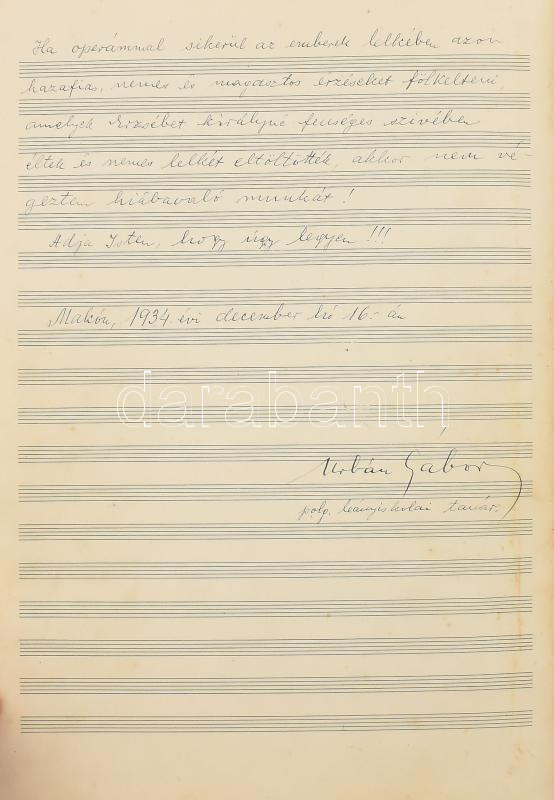 Ha operámmal sikerül az emberek lelkében azon
hazafias, nemes és magasztos érzéseket fölkelteni,
amelyek Erzsébet királyné fenséges szivében
éltek és nemes lelkét eltöltötték, akkor nem vé-
geztem hiábavaló munkát!
Adja Isten, hogy úgy legyen!!!
Makón, 1934 évi december hó 16.-án
darabanth
Urbán Gábor
polg. leányiskolai tanár.